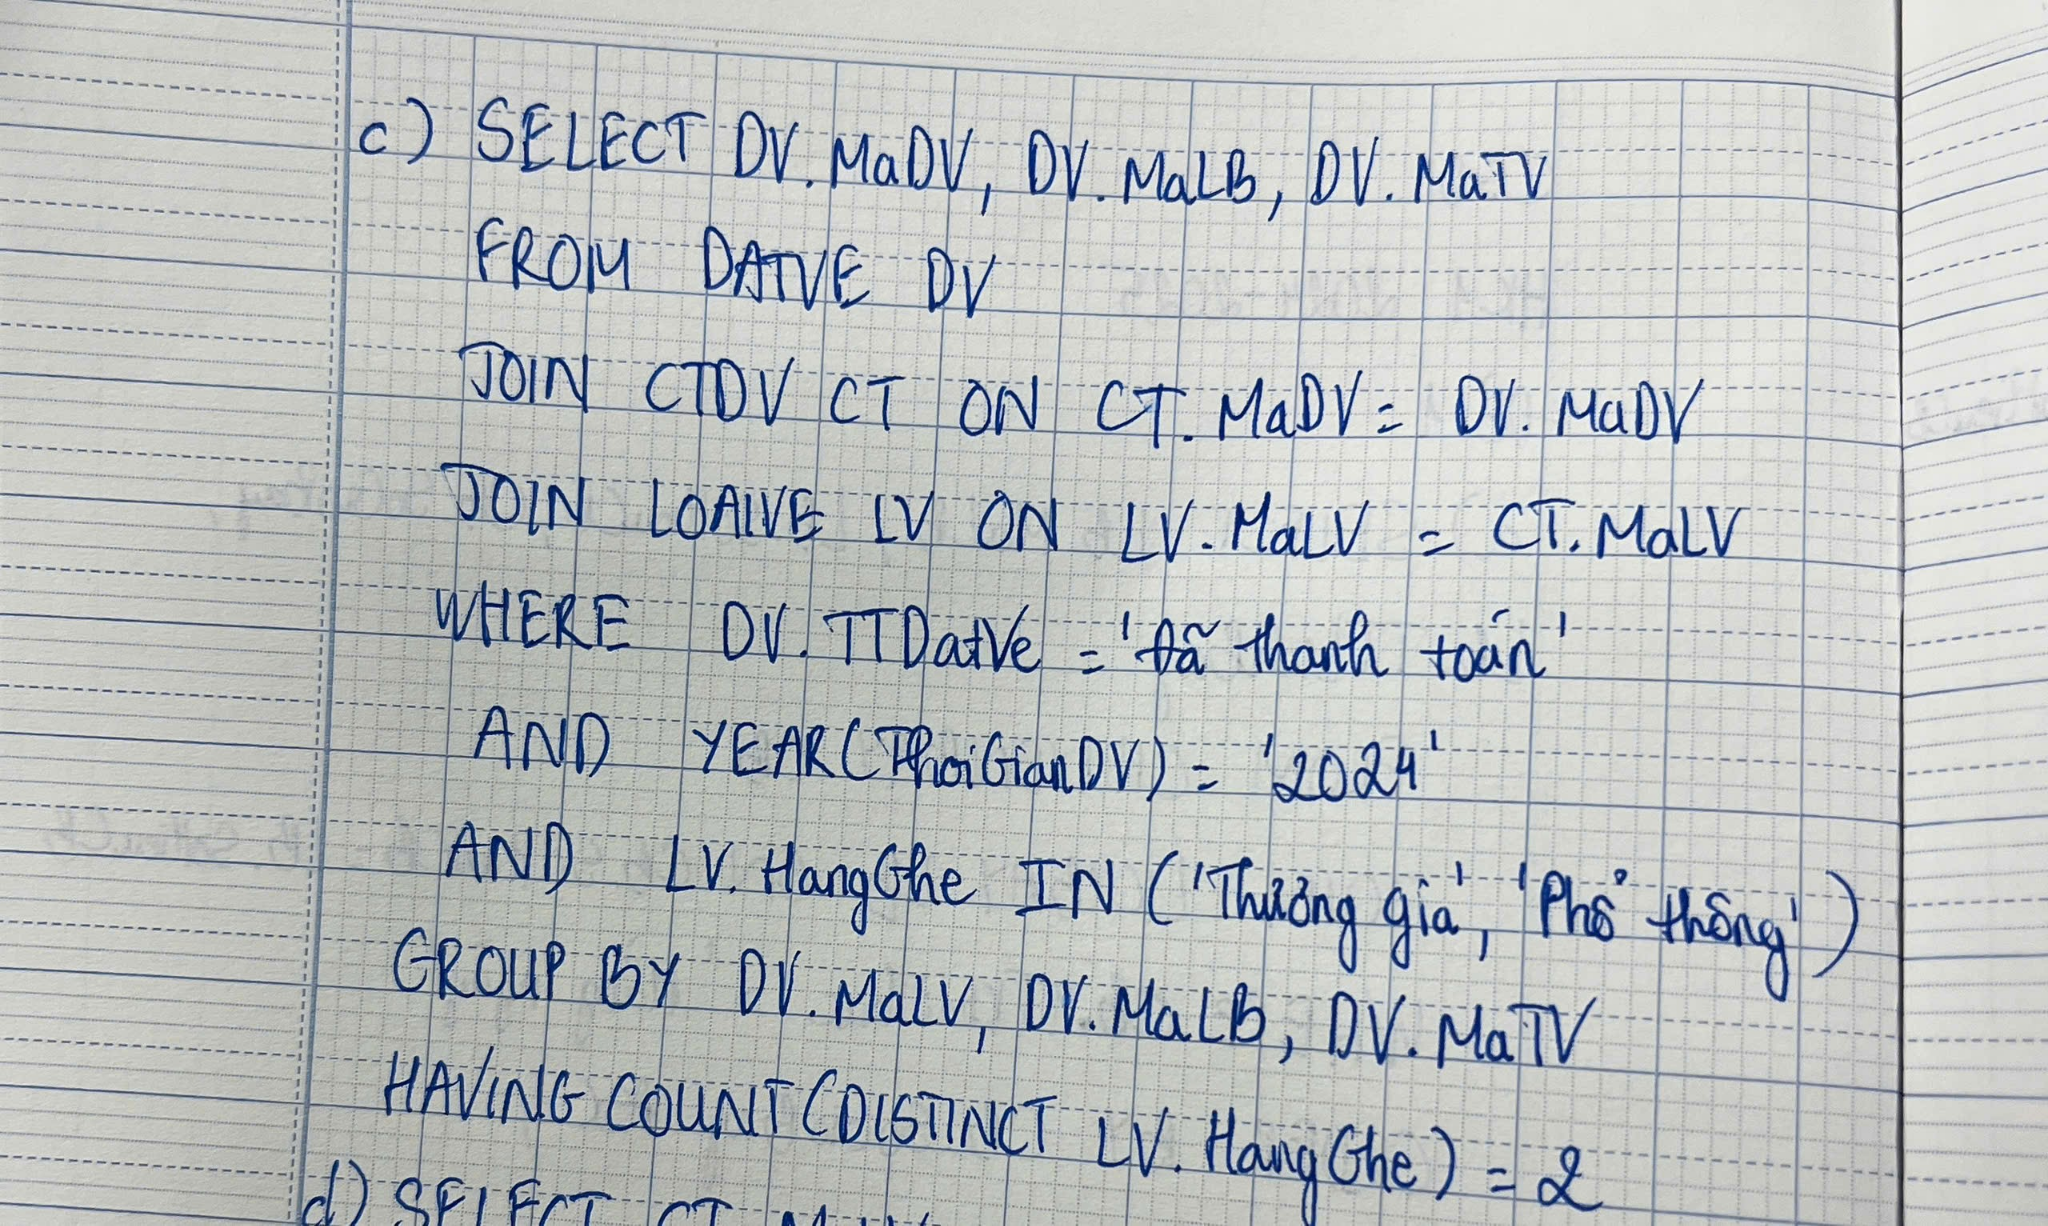 c) SELECT DV.MaDV, DV.MaLB, DV.MaTV
FROM DATVE DV
JOIN CTDV CT ON CT.MaDV = DV.MaDV
JOIN LOAIVE LV ON LV.MaLV = CT.MaLV
WHERE DV.TTDatVe = 'Đã thanh toán'
AND YEAR(ThoiGianDV) = '2024'
AND LV.HangGhe IN ('Thương gia', 'Phổ thông')
GROUP BY DV.MaLV, DV.MaLB, DV.MaTV
HAVING COUNT(DISTINCT LV.HangGhe) = 2
d) SELECT CT.